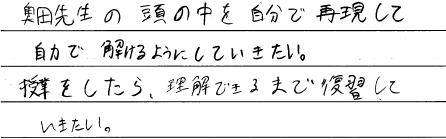 奥田先生の頭の中を自分で再現して
自力で解けるようにしていきたい。
授業をしたら、理解できるまで復習して
いきたい。